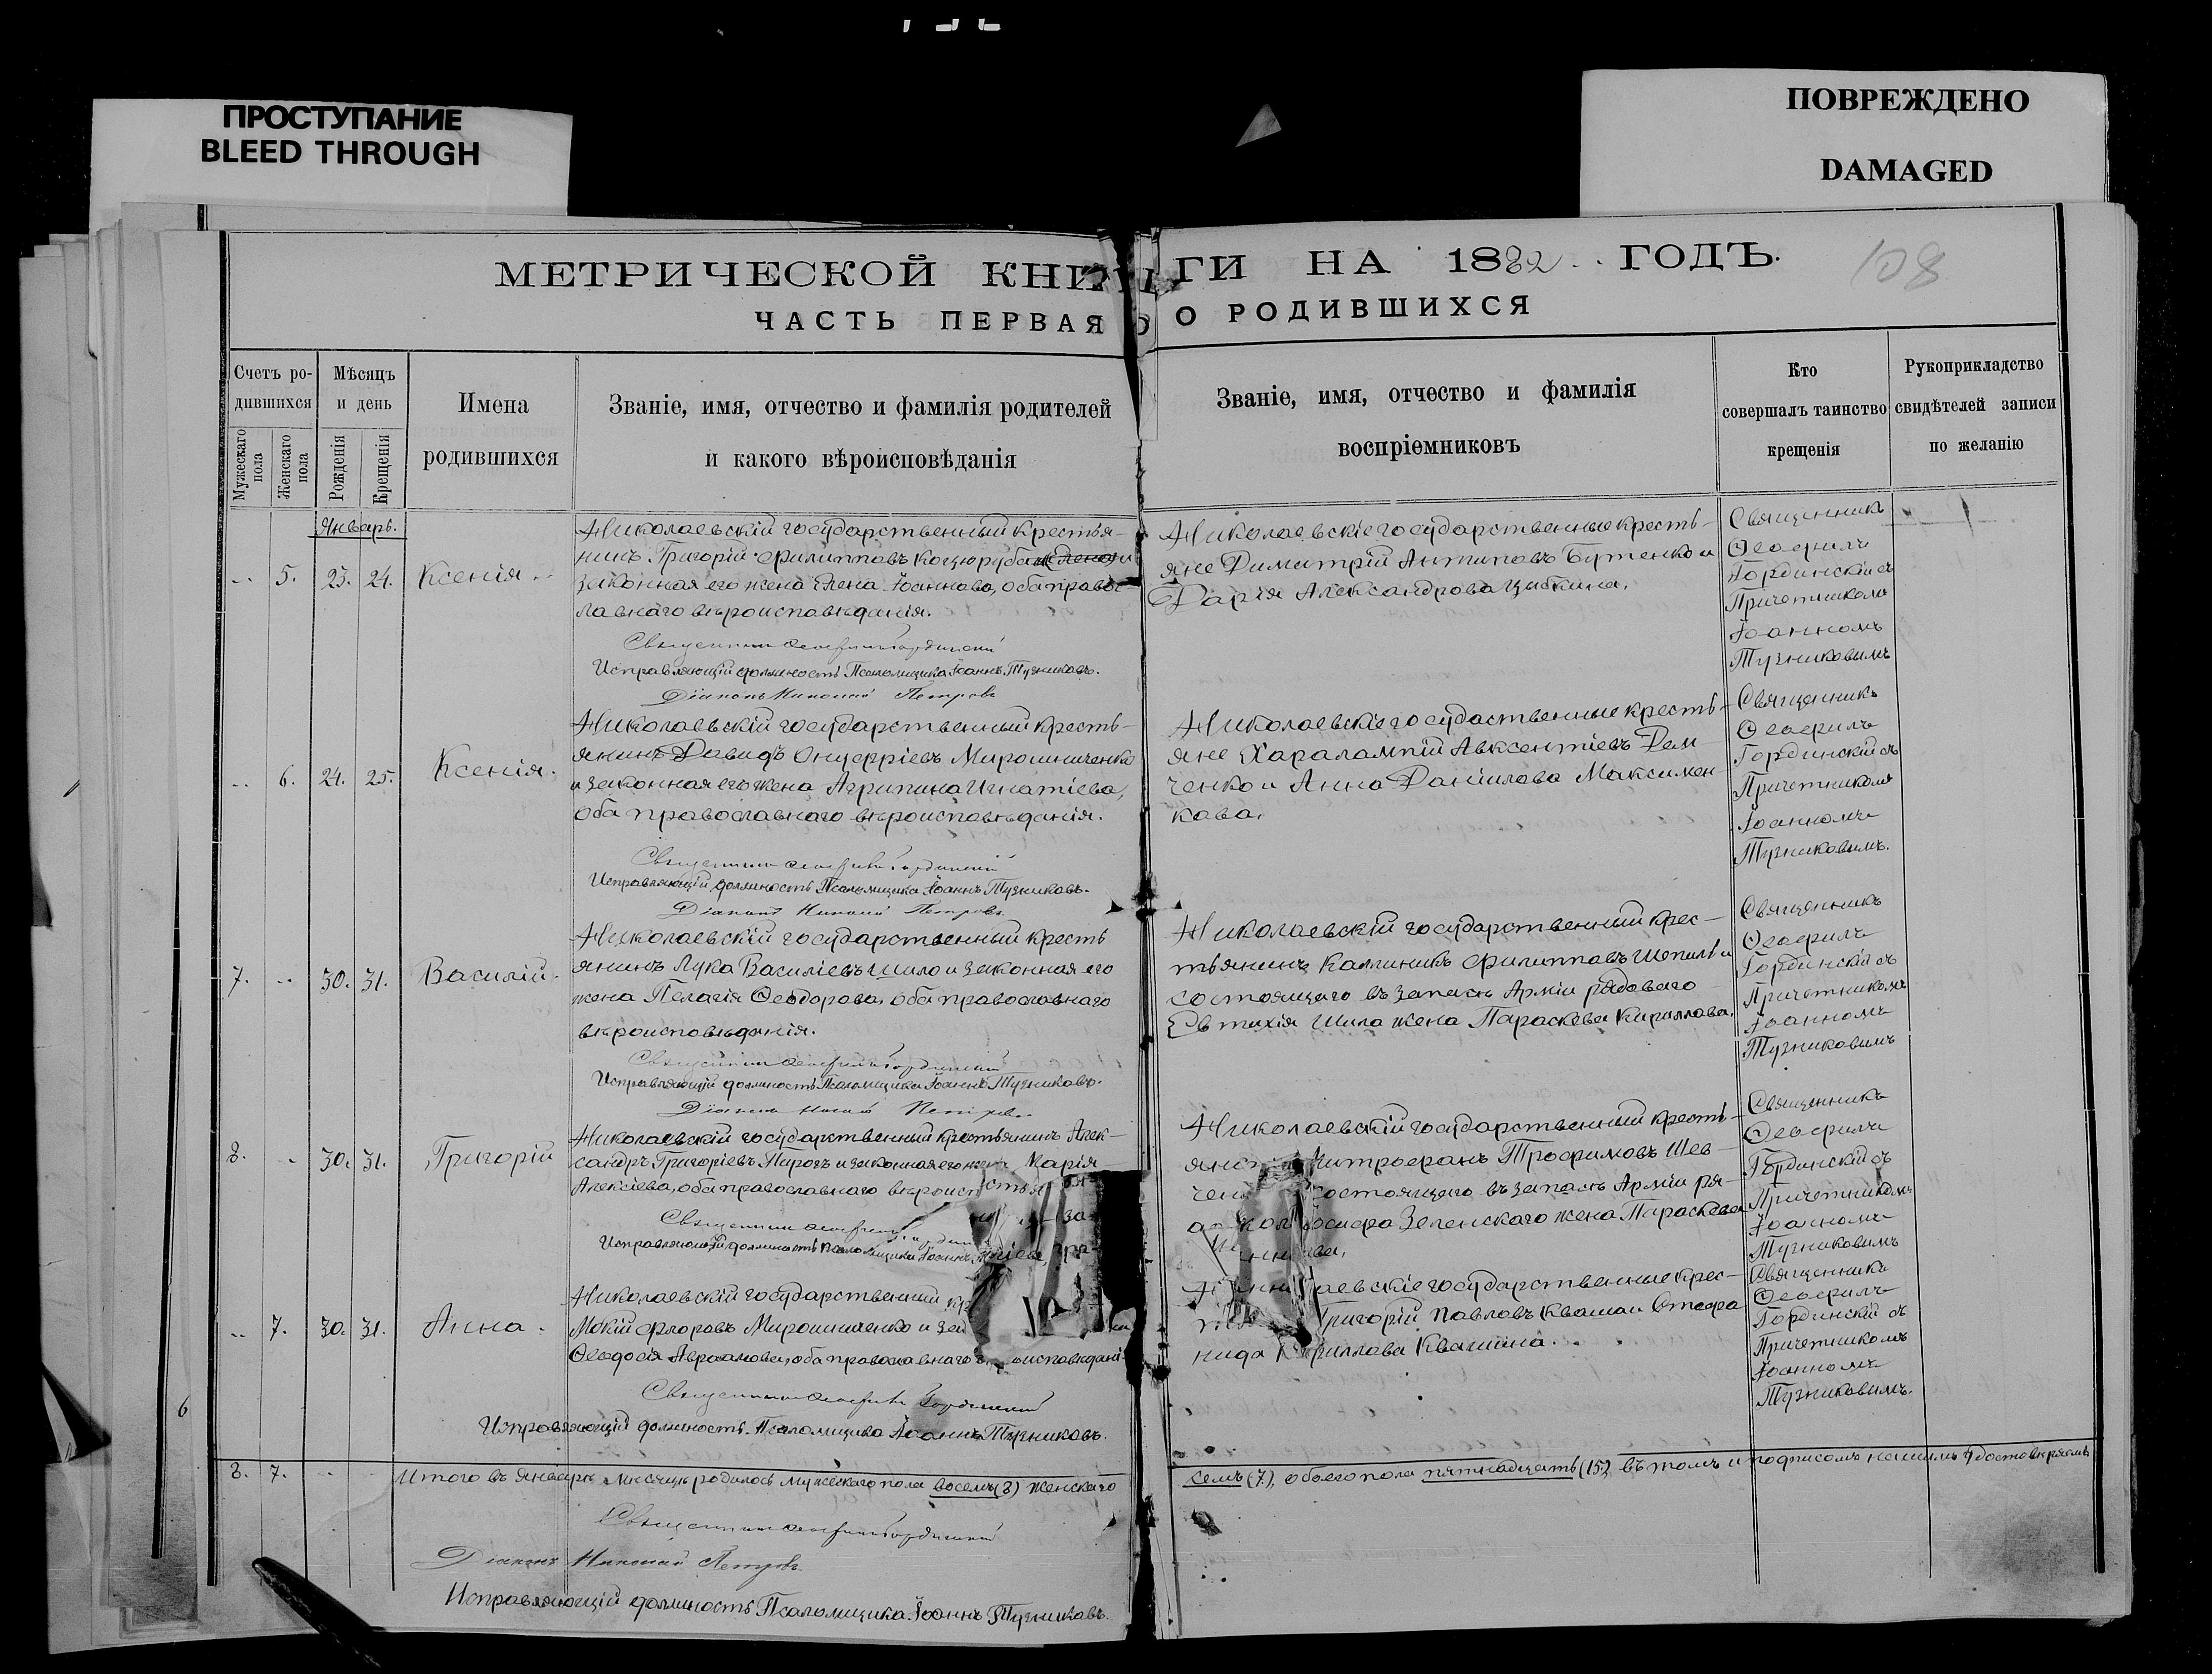 ПРОСТУПАНИЕ
BLEED THROUGH
ПОВРЕЖДЕНО
DAMAGED
МЕТРИЧЕСКОЙ КНИГИ НА 1882 ГОДЪ.
108
ЧАСТЬ ПЕРВАЯ О РОДИВШИХСЯ
Счетъ ро-
дившихся
Мужескаго пола
Женскаго пола
Мѣсяцъ
и день
Рожденія
Крещенія
Имена
родившихся
Званіе, имя, отчество и фамилія родителей
и какого вѣроисповѣданія
Званіе, имя, отчество и фамилія
воспріемниковъ
Кто
совершалъ таинство
крещенія
Рукоприкладство
свидѣтелей записи
по желанію
Январь.
5. 23. 24. Ксенія
Николаевскій государственный крестья-
нинъ Григорій Филипповъ и
законная его жена Елена Іоаннова, оба правос-
лавнаго вѣроисповѣданія.
Священникъ Ѳеофилъ Гординскій
Исправляющій должность Псаломщика Іоаннъ Тузниковъ.
Діаконъ Николай Петровъ
Николаевскіе государственные кресть-
яне Димитрій Антиповъ Бутенко и
Дарія Александрова
Священникъ
Ѳеофилъ
Гординскій съ
Причетникомъ
Іоанномъ
Тузниковымъ
6. 24. 25. Ксенія.
Николаевскій государственный кресть-
янинъ Давидъ Онуфріевъ Мирошниченко
и законная его жена Агрипина Игнатіева,
оба православнаго вѣроисповѣданія.
Священникъ Ѳеофилъ Гординскій
Исправляющій должность Псаломщика Іоаннъ Тузниковъ.
Діаконъ Николай Петровъ.
Николаевскіе госудаственные кресть-
яне Харалампій Авксентіевъ Дем-
ченко и Анна Даніилова Максимен-
кова.
Священникъ
Ѳеофилъ
Гординскій съ
Причетникомъ
Іоанномъ
Тузниковымъ.
7. 30. 31. Василій.
Николаевскій государственный кресть
янинъ Лука Василіевъ Шило и законная его
жена Пелагія Ѳеодорова, оба православнаго
вѣроисповѣданія.
Священникъ Ѳеофилъ Гординскій
Исправляющій должность Псаломщика Іоаннъ Тузниковъ.
Діаконъ Николай Петровъ
Николаевскій государственный крес-
тьянинъ Каллиникъ Филипповъ и
состоящаго въ запасѣ Арміи рядоваго
Евтихія Шила жена Параскева Кириллова.
Священникъ
Ѳеофилъ
Гординскій съ
Причетникомъ
Іоанномъ
Тузниковымъ
8. 30. 31. Григорій
Николаевскій государственный крестьянинъ Алек-
сандръ Григоріевъ Пирогъ и законная его жена Марія
Алексіева, оба православнаго
Священникъ Ѳеофилъ
Исправляющій должность Псаломщика Іоаннъ
Николаевскій государственный кресть-
Митрофанъ Трофимовъ Шев-
ченко состоящаго въ запасѣ Арміи ря-
Іосифа Зеленскаго жена Параскева
Священникъ
Ѳеофилъ
Гординскій съ
Причетникомъ
Іоанномъ
Тузниковымъ
7. 30. 31. Анна.
Николаевскій государственный
Мокій Флоровъ Мирошниченко и
Ѳеодосія Авраамова, оба православнаго
Священникъ Ѳеофилъ Гординскій
Исправляющій должность Псаломщика Іоаннъ Тузниковъ.
Николаевскіе государственные крес-
Григорій Павловъ Кваша и Стефа
нида Кириллова Квашина.
Священникъ
Ѳеофилъ
Гординскій съ
Причетникомъ
Іоанномъ
Тузниковымъ.
6
8. 7. Итого въ январѣ мѣсяцѣ родилось мужескаго пола восемь (8) женскаго семь (7), обоего пола пятнадцать (15), въ томъ и подписомъ нашимъ удостовѣряемъ
Священникъ Ѳеофилъ Гординскій
Діаконъ Николай Петровъ.
Исправляющій должность Псаломщика Іоаннъ Тузниковъ.